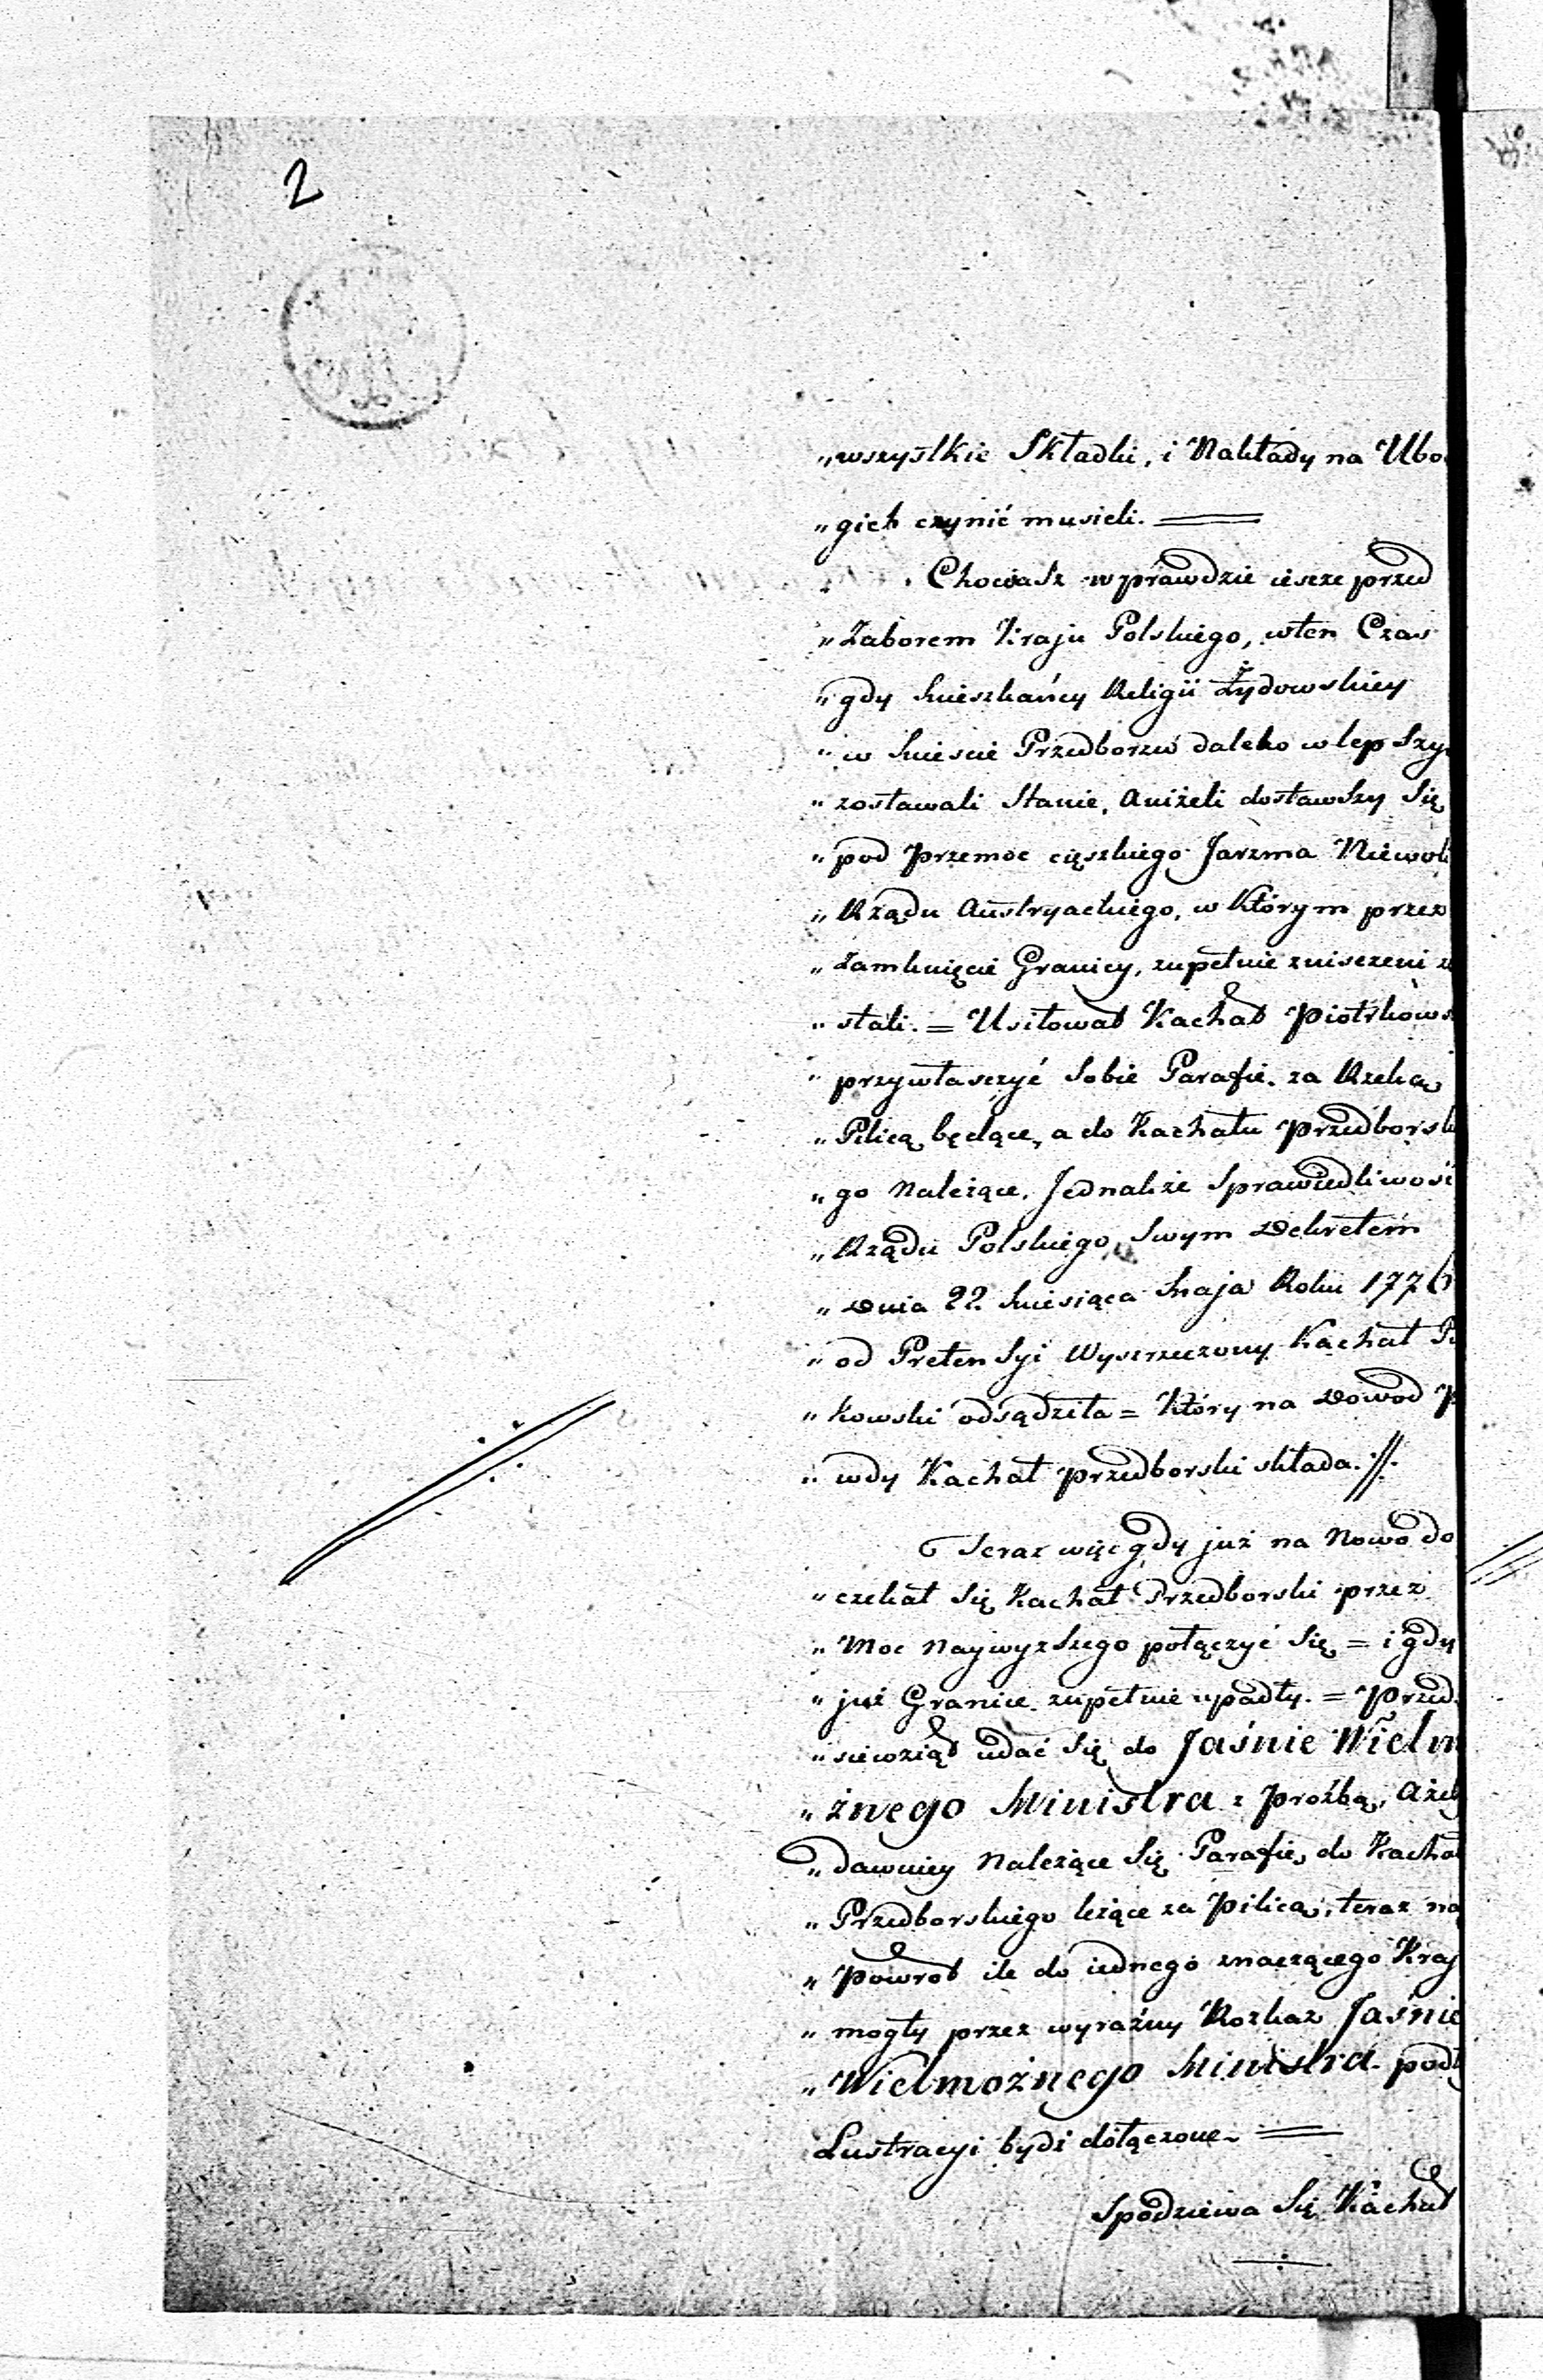 2
„wszystkie Składki, i Nakłady na Ubo
„gich czynić musieli. =
„ Chociasz wprawdzie ieszcze przed
„Zaborem Kraju Polskiego, wten Czas
„gdy Mieszkańcy Religii Żydowskiey
„w Mieście Przedborzu daleko w lep Szy
„zostawali Stanie, Aniżeli dostawszy Się
„pod Przemoc cięszkiego Jarzma Niewoli
„Rządu Austryackiego, w Którym przez
„Zamknięcie Granicy, zupełnie zniszczeni z
„stali. = Usiłował Kachał Piotrkows
„przywłaszczyć Sobie Parafie za Rzeką
„Pilicą będące, a do Kachału Przedborsk
„go Należące, Jednakże Sprawiedliwość
„Rządu Polskiego, Swym Dekretem
„Dnia 22 Miesiąca Maja Roku 1776
„od Preten Syi Wyserzeczony Kachał P
„kowski odsądziła = Który na Dowod P
„wdy Kachał Przedborski składa. //.
Teraz więc gdy już na Nowo do
„czekał Się Kachał Przedborski przez
„Moc Naywyzszego połączyć Się = i gdy
„już Granice zupełnie upadły. = Przed
„siewziął udać Się do Jaśnie Wielm
„żnego Ministra z Proźbą, Ażeby
„dawniey Należące Się Parafie, do Kachał
„Przedborskiego leżące za Pilicą, teraz na
„Powrót ile do iednego znaczącego Kraj
„mogły przez wyraźny Rozkaz Jaśnie
„Wielmożnego Ministra podł
Lustracyi bydź dołączone. =
Spodziewa Się Kachał